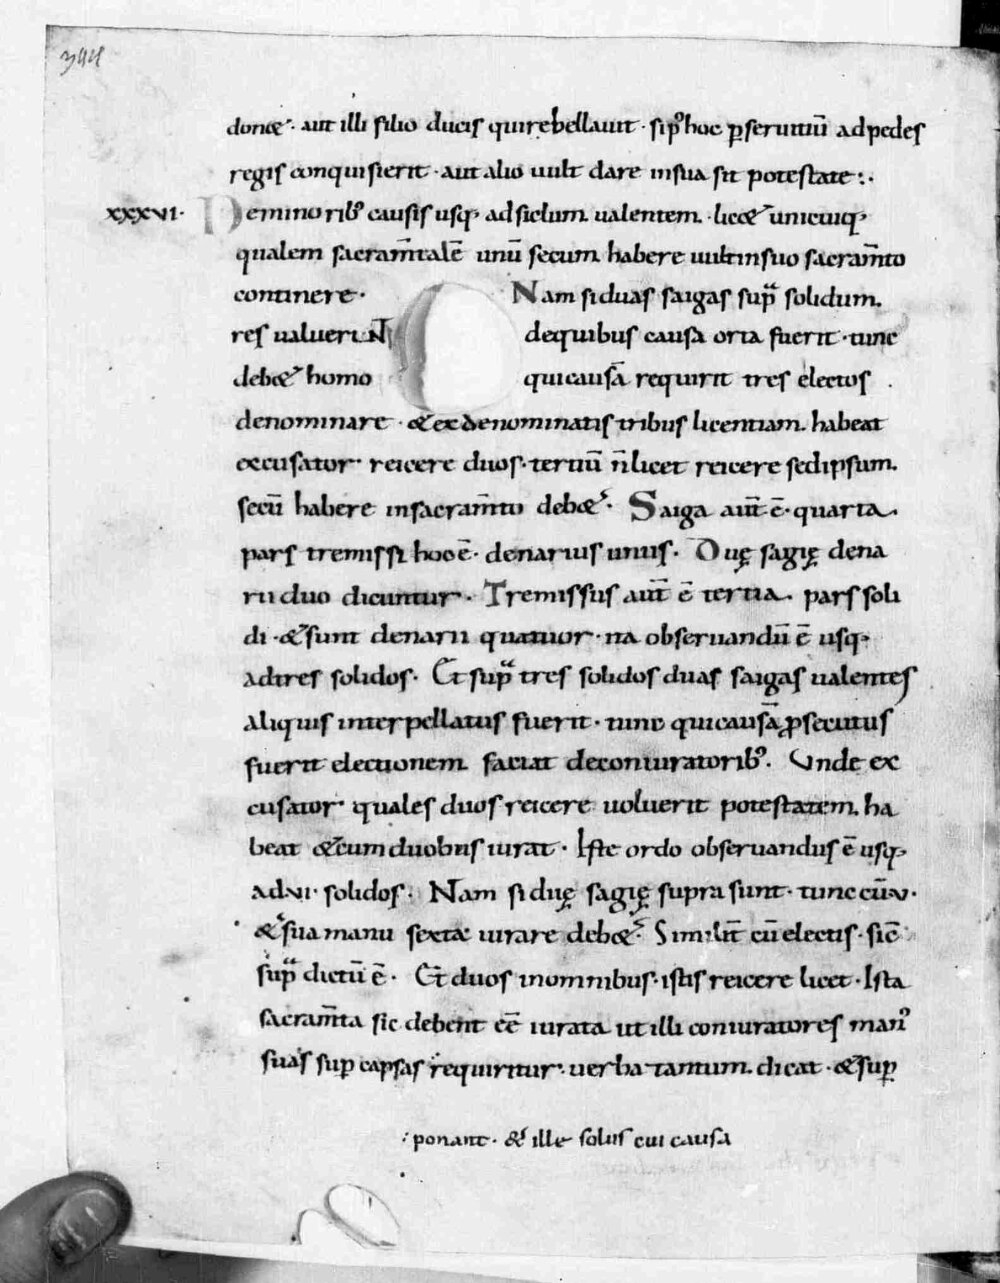 344
donet · aut illi filio ducis qui rebellavit · si p᷒ hoc ꝑ servitiū ad pedes
regis conquisierit · aut alio vult dare in sua sit potestate :·
XXXVI · De minorib; causis usq; ad siclum valentem · licet unicuiq;
qualem sacram̄talē unū secum habere vult in suo sacram̄to
continere · Nam si duas saigas sup̄ solidum
res valuerint de quibus causa orta fuerit · tunc
debet homo qui causā requirit tres electos
denominare · & ex denominatis tribus licentiam habeat
excusator reicere duos · tertiū n̄ licet reicere sed ipsum
secū habere in sacram̄to debet · Saiga aut̄ ē · quarta
pars tremissi hoc ē · denarius unus · Duę sagię dena
rii duo dicuntur · Tremissus aut̄ ē tertia pars soli
di · & sunt denarii quatuor · na observandū ē usq;
ad tres solidos · Et sup̄ tres solidos duas saigas valentes
aliquis interpellatus fuerit · tunc qui causā ꝓsecutus
fuerit electionem faciat de coniuratorib; · Unde ex
cusator quales duos reicere voluerit potestatem ha
beat & cum duobus iurat · Iste ordo observandus ē usq;
ad · VI · solidos · Nam si duę sagię supra sunt · tunc cū · V ·
& sua manu sexta iurare debet · Similit̄ cū electis · sic̄
sup̄ dictū ē · Et duos in omnibus · istis reicere licet · Ista
sacram̄ta sic debent eē iurata ut illi coniuratores man᷒
suas sup̄ capsas requiritur · verba tantum dicat · & sup̄
ponant · & ille solus cui causa